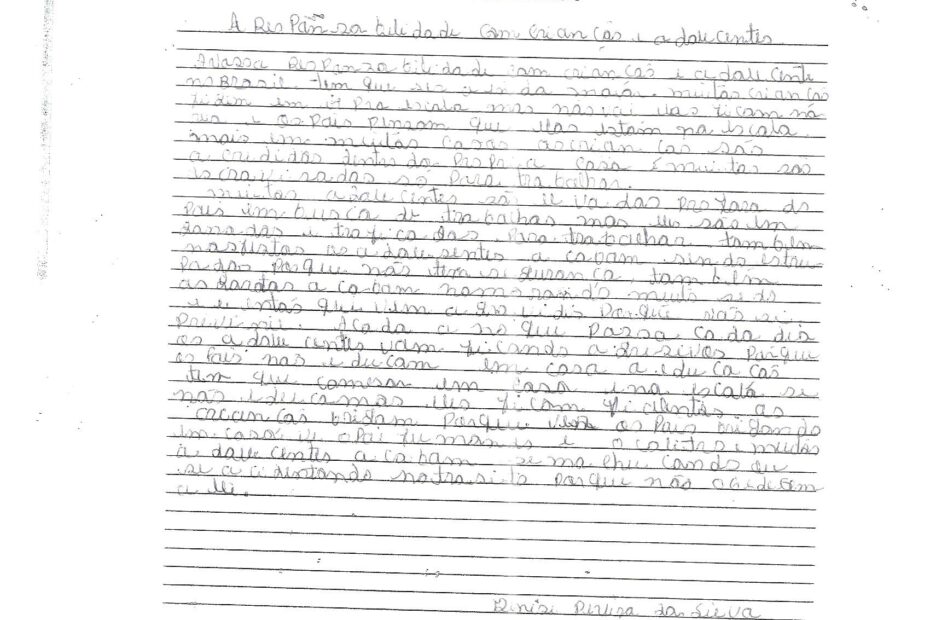 A Responsabilidade com crianças e adolecentes
A nossa Responzabilidade com crianças e adolecente
no Brasil. tem que ser ainda maior. muitas crianças
dizem em ir pra iscola mas não vai elas ficam na
rua e os Pais Pensam que elas istam na iscola.
mais em muitas casas as crianças são
acrididas dentro do Propria casa E muitas são
iscravisadas só Para trabalhar.
muitos adolecentes são levadas pra fora do
Pais im busca de trabalhos mas eles são in
ganadas e traficadas Para trabalhar tambem
nas festas as adolesentes acabam sindo estru-
Padas Porque não tem sigurança, tambem
as garotas acabam namorando muito sedo
e e intão que vem a gravidis Porque não si
previnir. Acada ano que Passa cada dia
os adolecentes vam ficando agresivos Porque
os Pais nao educam em casa a educacão
tem que comesar em casa e na iscola se
não educamos eles ficam violentos as
criancas brigam Porque vem os Pais brigando
em casa, ve o Pai fumando e o alcol e muitos
adolecentes acabam se machucando ou
se acidentando no trasito Porque não obedesem
a lei.
Denise Pereira da Silva